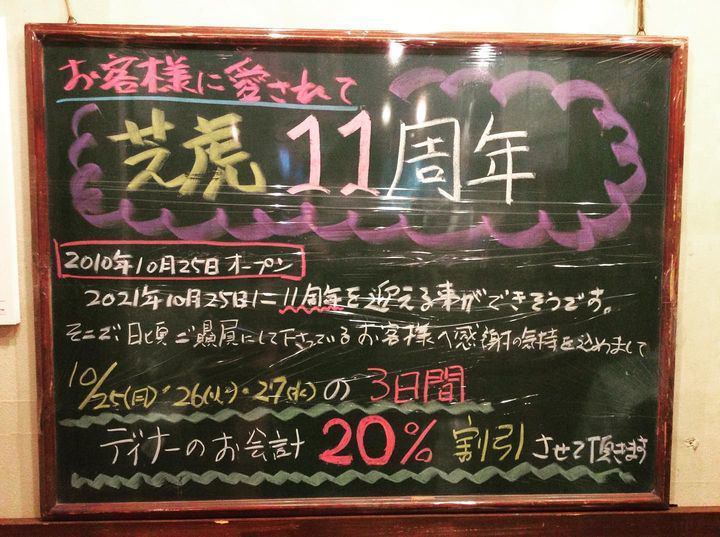 お客様に愛されて
芝虎 11周年
2010年10月25日オープン
2021年10月25日に11周年を迎える事ができそうです。
そこで、日頃ご贔屓にして下さっているお客様へ感謝の気持を込めまして
10/25(月)・26(火)・27(水)の 3日間
ディナーのお会計 20% 割引させて頂きます